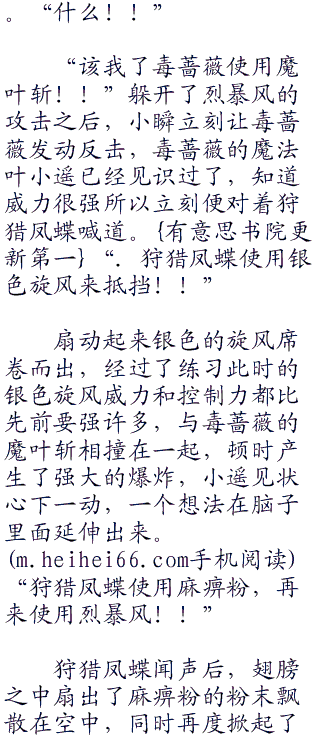 。“什么！！”
“该我了毒蔷薇使用魔
叶斩！！”躲开了烈暴风的
攻击之后，小瞬立刻让毒蔷
薇发动反击，毒蔷薇的魔法
叶小遥已经见识过了，知道
威力很强所以立刻便对着狩
猎凤蝶喊道。{有意思书院更
新第一}“．狩猎凤蝶使用银
色旋风来抵挡！！”
扇动起来银色的旋风席
卷而出，经过了练习此时的
银色旋风威力和控制力都比
先前要强许多，与毒蔷薇的
魔叶斩相撞在一起，顿时产
生了强大的爆炸，小遥见状
心下一动，一个想法在脑子
里面延伸出来。
(m.heihei66.com手机阅读)
“狩猎凤蝶使用麻痹粉，再
来使用烈暴风！！”
狩猎凤蝶闻声后，翅膀
之中扇出了麻痹粉的粉末飘
散在空中，同时再度掀起了